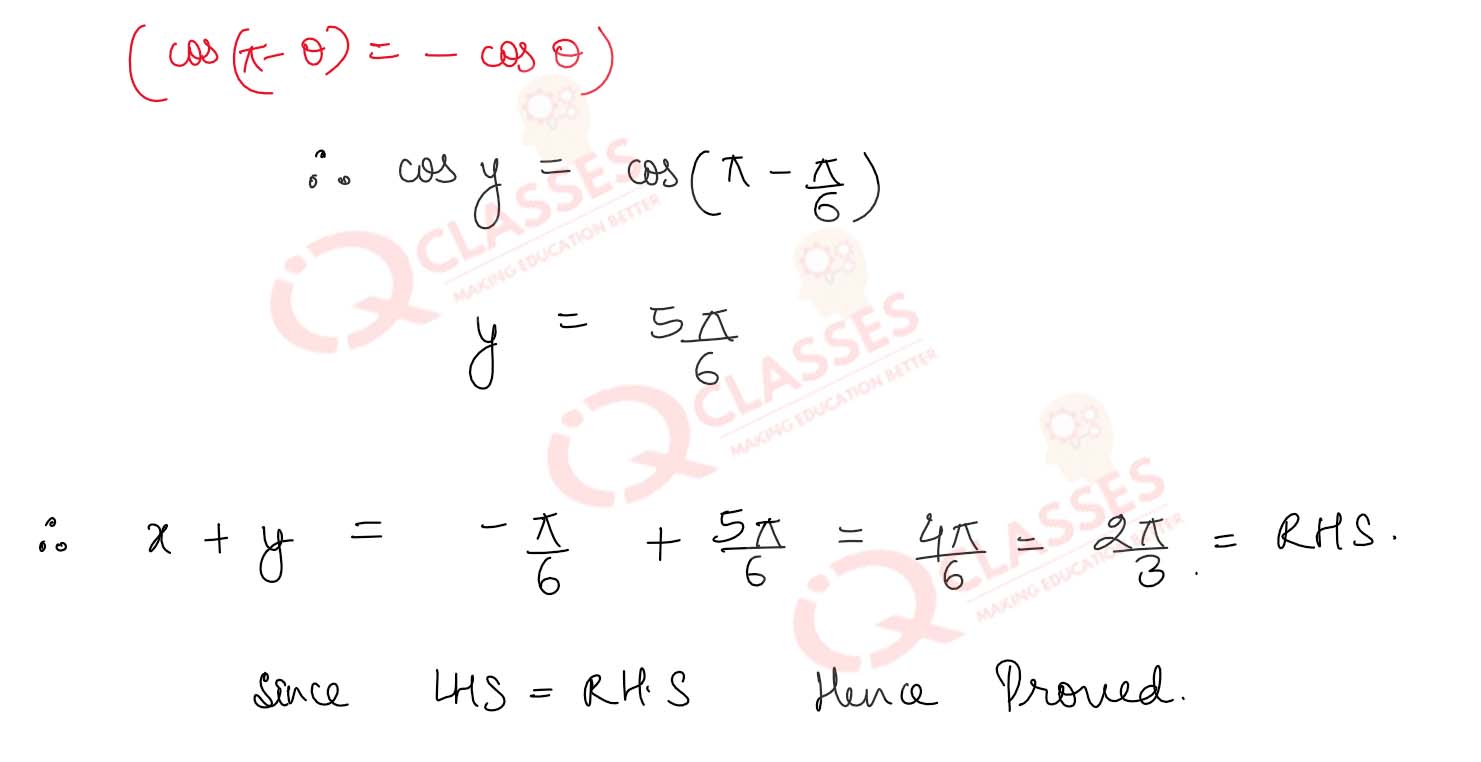 (cos(π - θ) = - cos θ)
∴ cos y = cos(π - π/6)
y = 5π/6
∴ x + y = - π/6 + 5π/6 = 4π/6 = 2π/3 . = RHS.
Since LHS = RH.S Hence Proved.
iQ CLASSES
MAKING EDUCATION BETTER
iQ CLASSES
MAKING EDUCATION BETTER
iQ CLASSES
MAKING EDUCATION BETTER